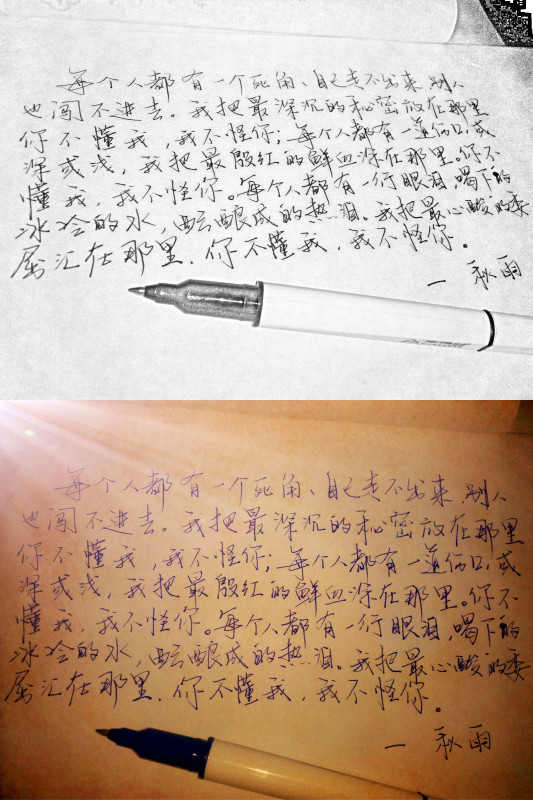 每个人都有一个死角、自己走不出来,别人
也闯不进去。我把最深沉的秘密放在那里
你不懂我,我不怪你;每个人都有一道伤口,或
深或浅,我把最殷红的鲜血涂在那里。你不
懂我,我不怪你。每个人都有一行眼泪,喝下的
冰冷的水,酝酿成的热泪。我把最心酸的委
屈汇在那里,你不懂我,我不怪你。
— 秋雨
每个人都有一个死角、自己走不出来,别人
也闯不进去。我把最深沉的秘密放在那里
你不懂我,我不怪你;每个人都有一道伤口,或
深或浅,我把最殷红的鲜血涂在那里。你不
懂我,我不怪你。每个人都有一行眼泪,喝下的
冰冷的水,酝酿成的热泪。我把最心酸的委
屈汇在那里,你不懂我,我不怪你。
— 秋雨